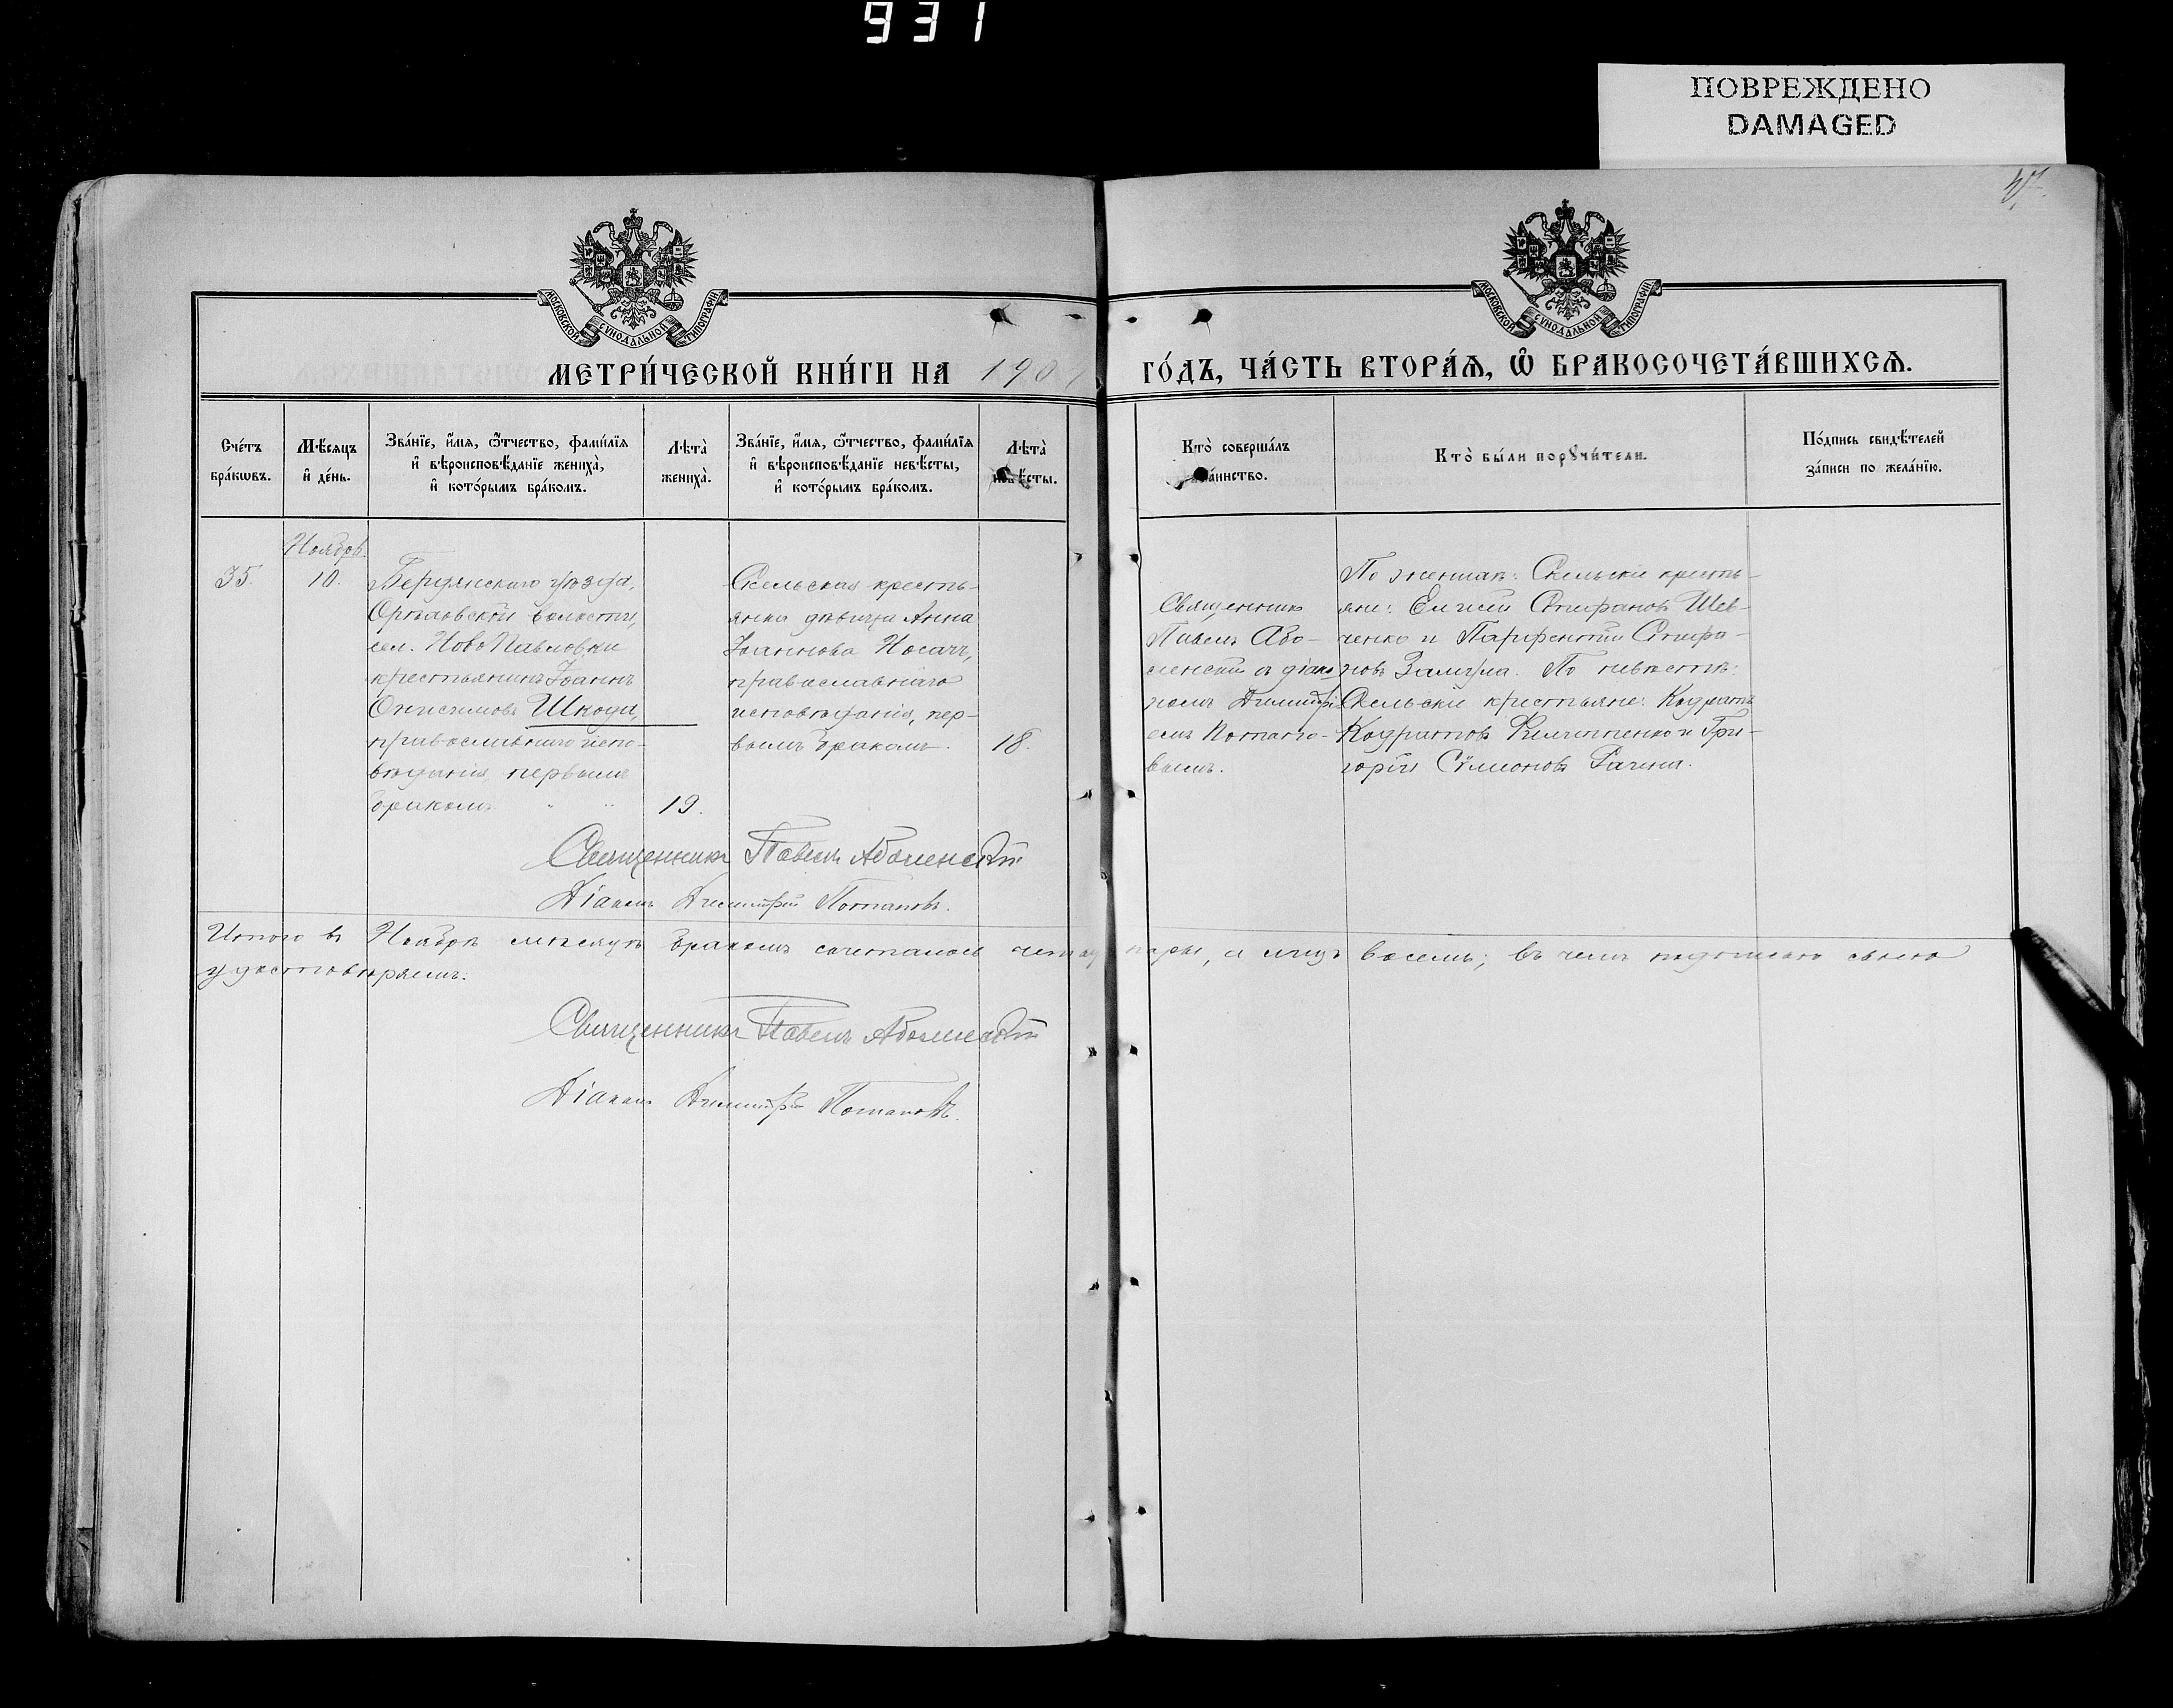 931
ПОВРЕЖДЕНО
DAMAGED
МОСКОВСКОЙ СѴНОДАЛЬНОЙ ТИПОГРАФІИ
МОСКОВСКОЙ СѴНОДАЛЬНОЙ ТИПОГРАФІИ
МЕТРИ́ЧЕСКОЙ КНИ́ГИ НА 190
ГО́ДЪ, ЧА́СТЬ ВТОРА́Ѧ, Ѡ҆ БРАКОСОЧЕТА́ВШИХСѦ.
Сче́тъ
бра́кѡвъ.
Мѣ́сѧцъ
и҆ де́нь.
Зва́нїе, и҆́мѧ, ѻ҆́тчество, фами́лїѧ
и҆ вѣроисповѣ́данїе жениха̀,
и҆ кото́рымъ бра́комъ.
Лѣта̀
жениха̀.
Зва́нїе, и҆́мѧ, ѻ҆́тчество, фами́лїѧ
и҆ вѣроисповѣ́данїе невѣ́сты,
и҆ кото́рымъ бра́комъ.
Лѣта̀
невѣ́сты.
Кто̀ соверша́лъ
таинство.
Кто̀ бы́ли порꙋчи́тели.
По́дпись свидѣ́телей
за́писи по жела́нїю.
35.
Ноябрь.
10.
Бердянскаго уѣзда,
Орѣховской волости,
сел. НовоПавловки
крестьянинъ Іоаннъ
Онисимовъ Шкода,
православнаго испо-
вѣданія, первымъ
бракомъ
19.
Скельская кресть-
янка дѣвица Анна
Іоаннова Носачъ,
православнаго
исповѣданія, пер-
вымъ бракомъ.
18.
Священникъ
Павелъ Або-
ленскій съ діако-
номъ Димитрі-
емъ Потапо-
вымъ.
По женихѣ: Скельскіе кресть-
яне: Елисей Стефановъ Шев-
ченко и Парфентій Стефа-
новъ Замула. По невѣстѣ:
Скельскіе крестьяне: Кодратъ
Кодратовъ Филиппенко и Гри-
горій Сѵмоновъ
Священникъ Павелъ Аболенскій
Діаконъ Димитрій Потаповъ.
Итого въ Ноябрѣ мѣсяцѣ бракомъ сочеталось пары, а лицъ восемь; въ чемъ подписью своею
удостовѣряемъ.
Священникъ Павелъ Аболенскій
Діаконъ Димитрій Потаповъ.